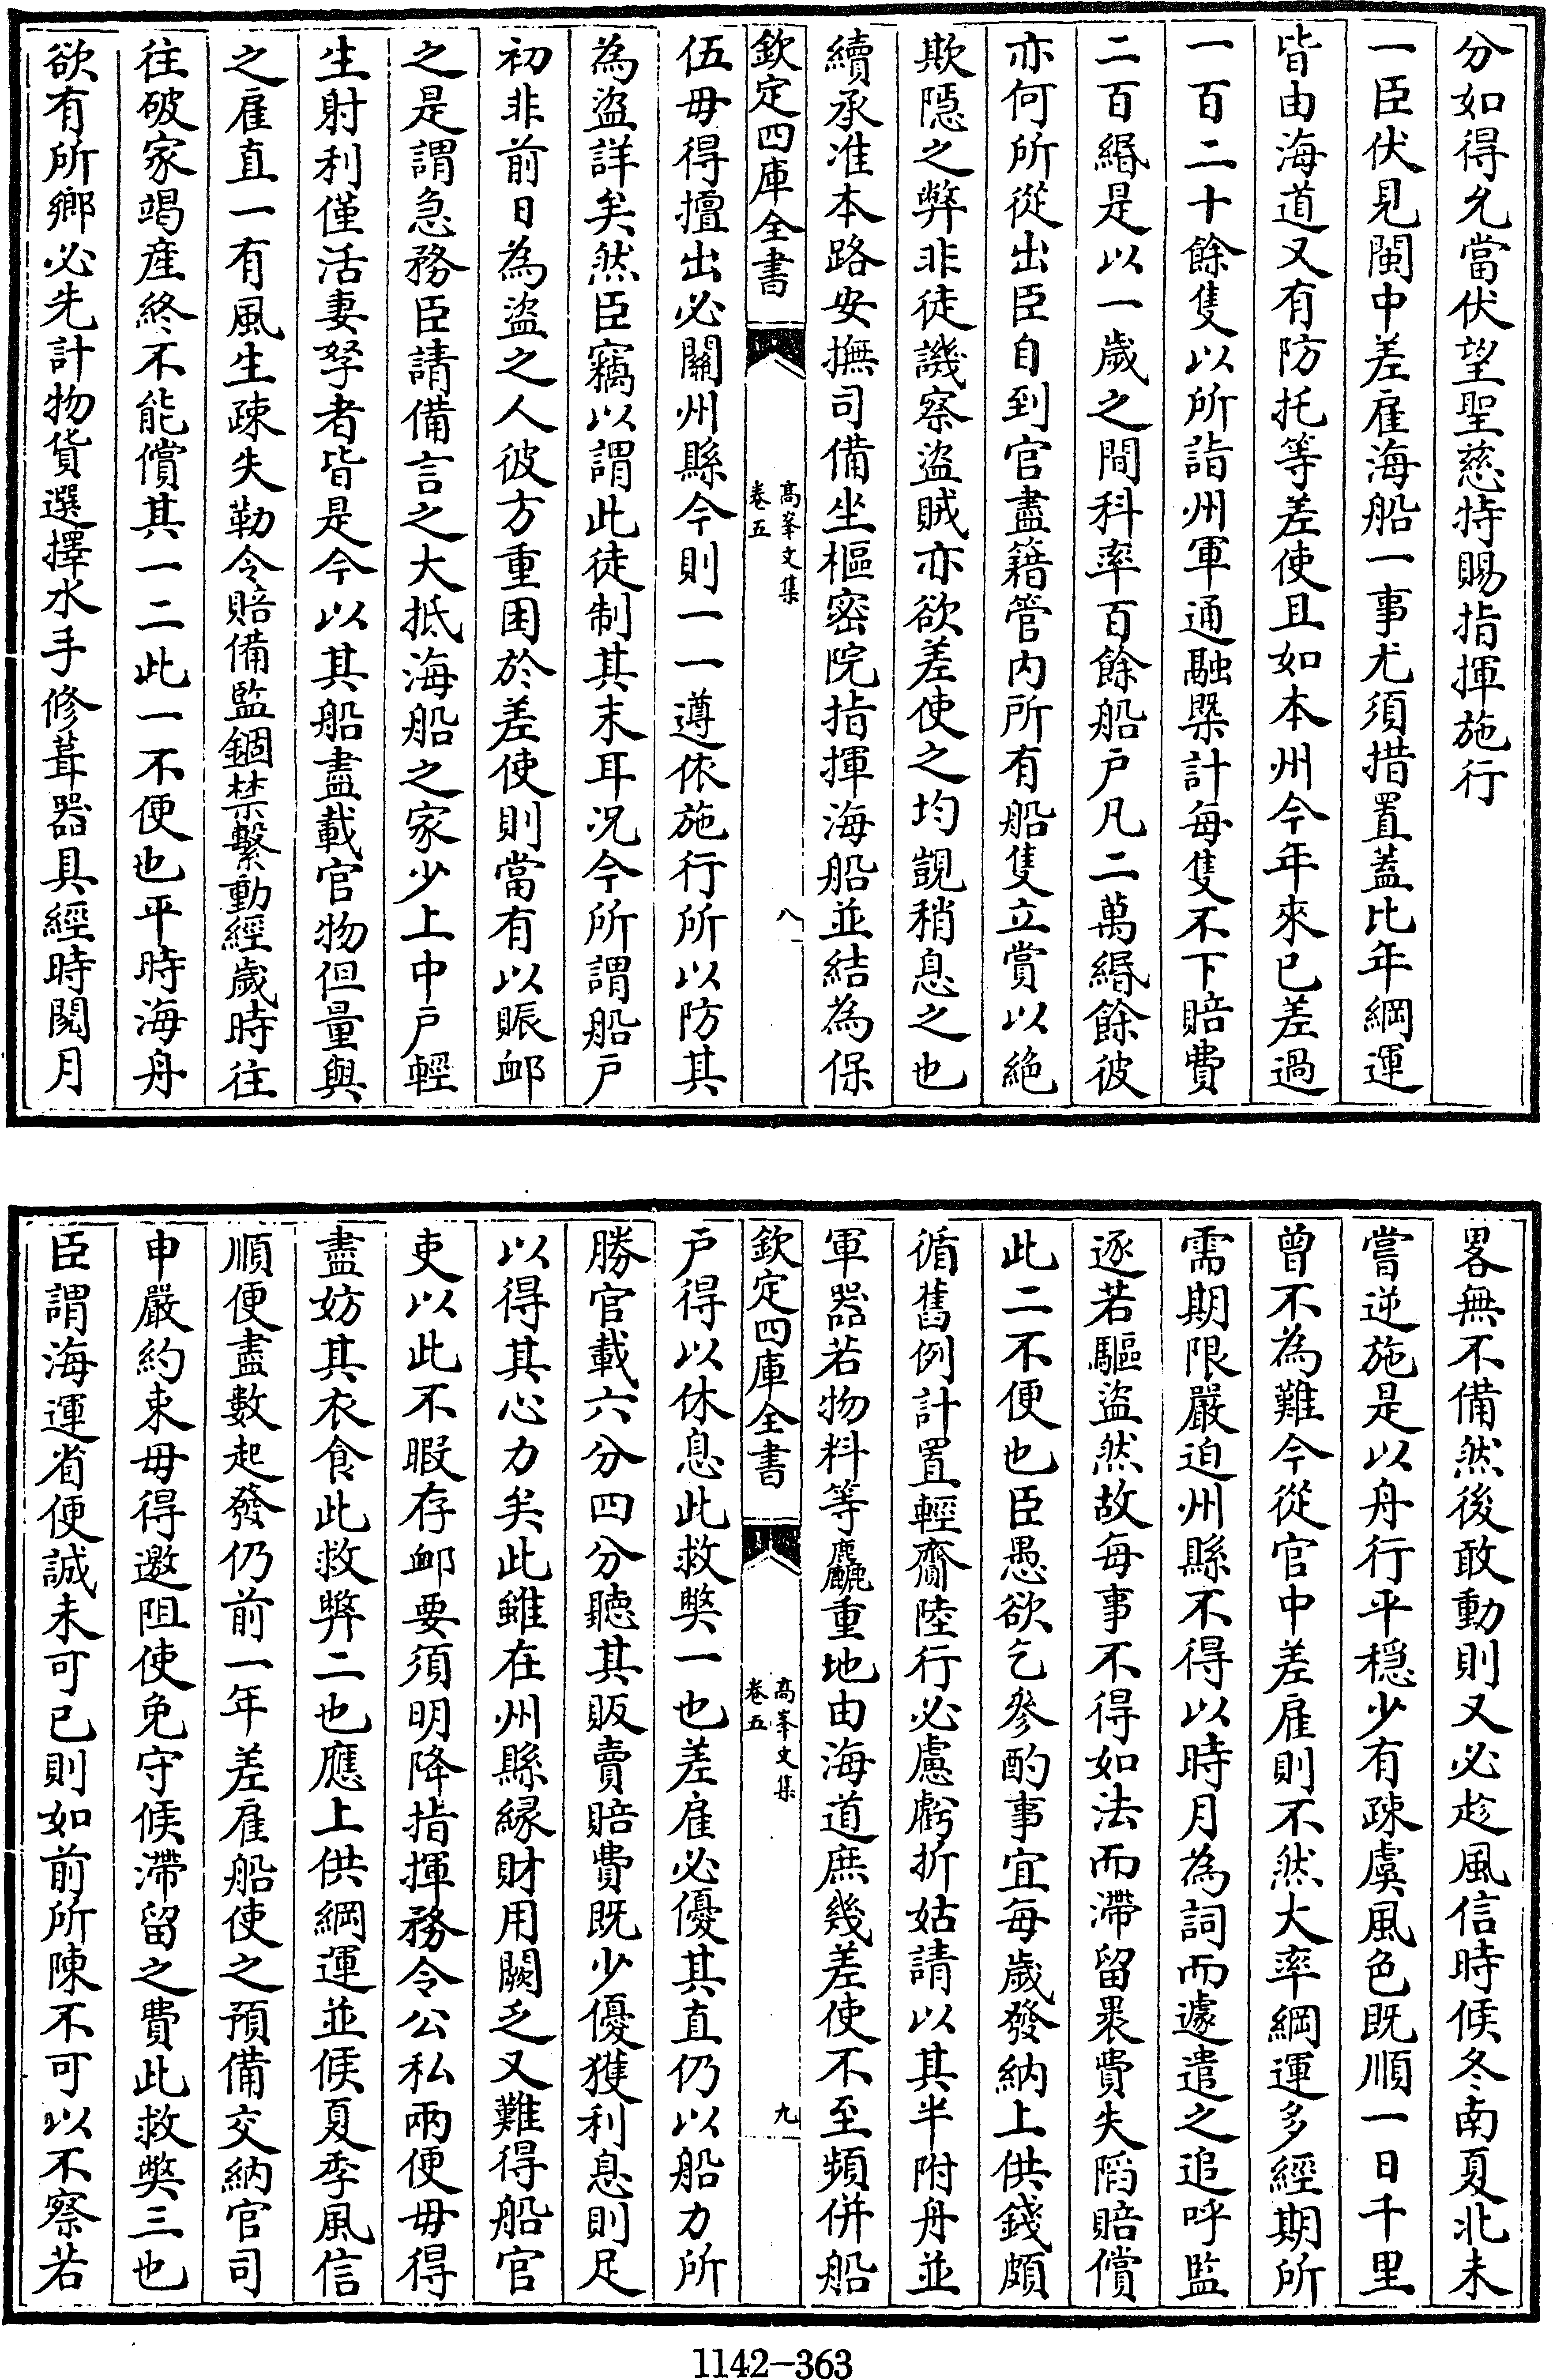 分如得允當伏望聖慈特賜指揮施行
一臣伏見閩中差雇海船一事尤須措置蓋比年綱運
皆由海道又有防托等差使且如本州今年來已差過
一百二十餘隻以所詣州軍通融槩計每隻不下賠費
二百緡是以一歲之間科率百餘船戸凡二萬緡餘彼
亦何所從出臣自到官盡籍管内所有船隻立賞以絶
欺隱之弊非徒譏察盜賊亦欲差使之均覬稍息之也
續承准本路安撫司備坐樞密院指揮海船並結為保
欽定四庫全書
高峯文集
卷五
八
伍毋得擅出必關州縣今則一一遵依施行所以防其
為盜詳矣然臣竊以謂此徒制其末耳况今所謂船戸
初非前日為盜之人彼方重困於差使則當有以賑卹
之是謂急務臣請備言之大抵海船之家少上中戸輕
生射利僅活妻孥者皆是今以其船盡載官物但量與
之雇直一有風生疎失勒令賠備監錮禁繫動經歲時往
往破家竭産終不能償其一二此一不便也平時海舟
欲有所鄉必先計物貨選擇水手修葺器具經時閱月
畧無不備然後敢動則又必趁風信時候冬南夏北未
嘗逆施是以舟行平穩少有疎虞風色既順一日千里
曾不為難今從官中差雇則不然大率綱運多經期所
需期限嚴迫州縣不得以時月為詞而遽遣之追呼監
逐若驅盜然故每事不得如法而滯留裹費失陷賠償
此二不便也臣愚欲乞參酌事宜每歲發納上供錢頗
循舊例計置輕齎陸行必慮虧折姑請以其半附舟並
軍器若物料等麤重地由海道庶幾差使不至頻併船
欽定四庫全書
高峯文集
卷五
九
戸得以休息此救弊一也差雇必優其直仍以船力所
勝官載六分四分聽其販賣賠費既少優獲利息則足
以得其心力矣此雖在州縣縁財用闕乏又難得船官
吏以此不暇存卹要須明降指揮務令公私兩便毋得
盡妨其衣食此救弊二也應上供綱運並候夏季風信
順便盡數起發仍前一年差雇船使之預備交納官司
申嚴約束毋得邀阻使免守候滯留之費此救弊三也
臣謂海運省便誠未可已則如前所陳不可以不察若
1142-363